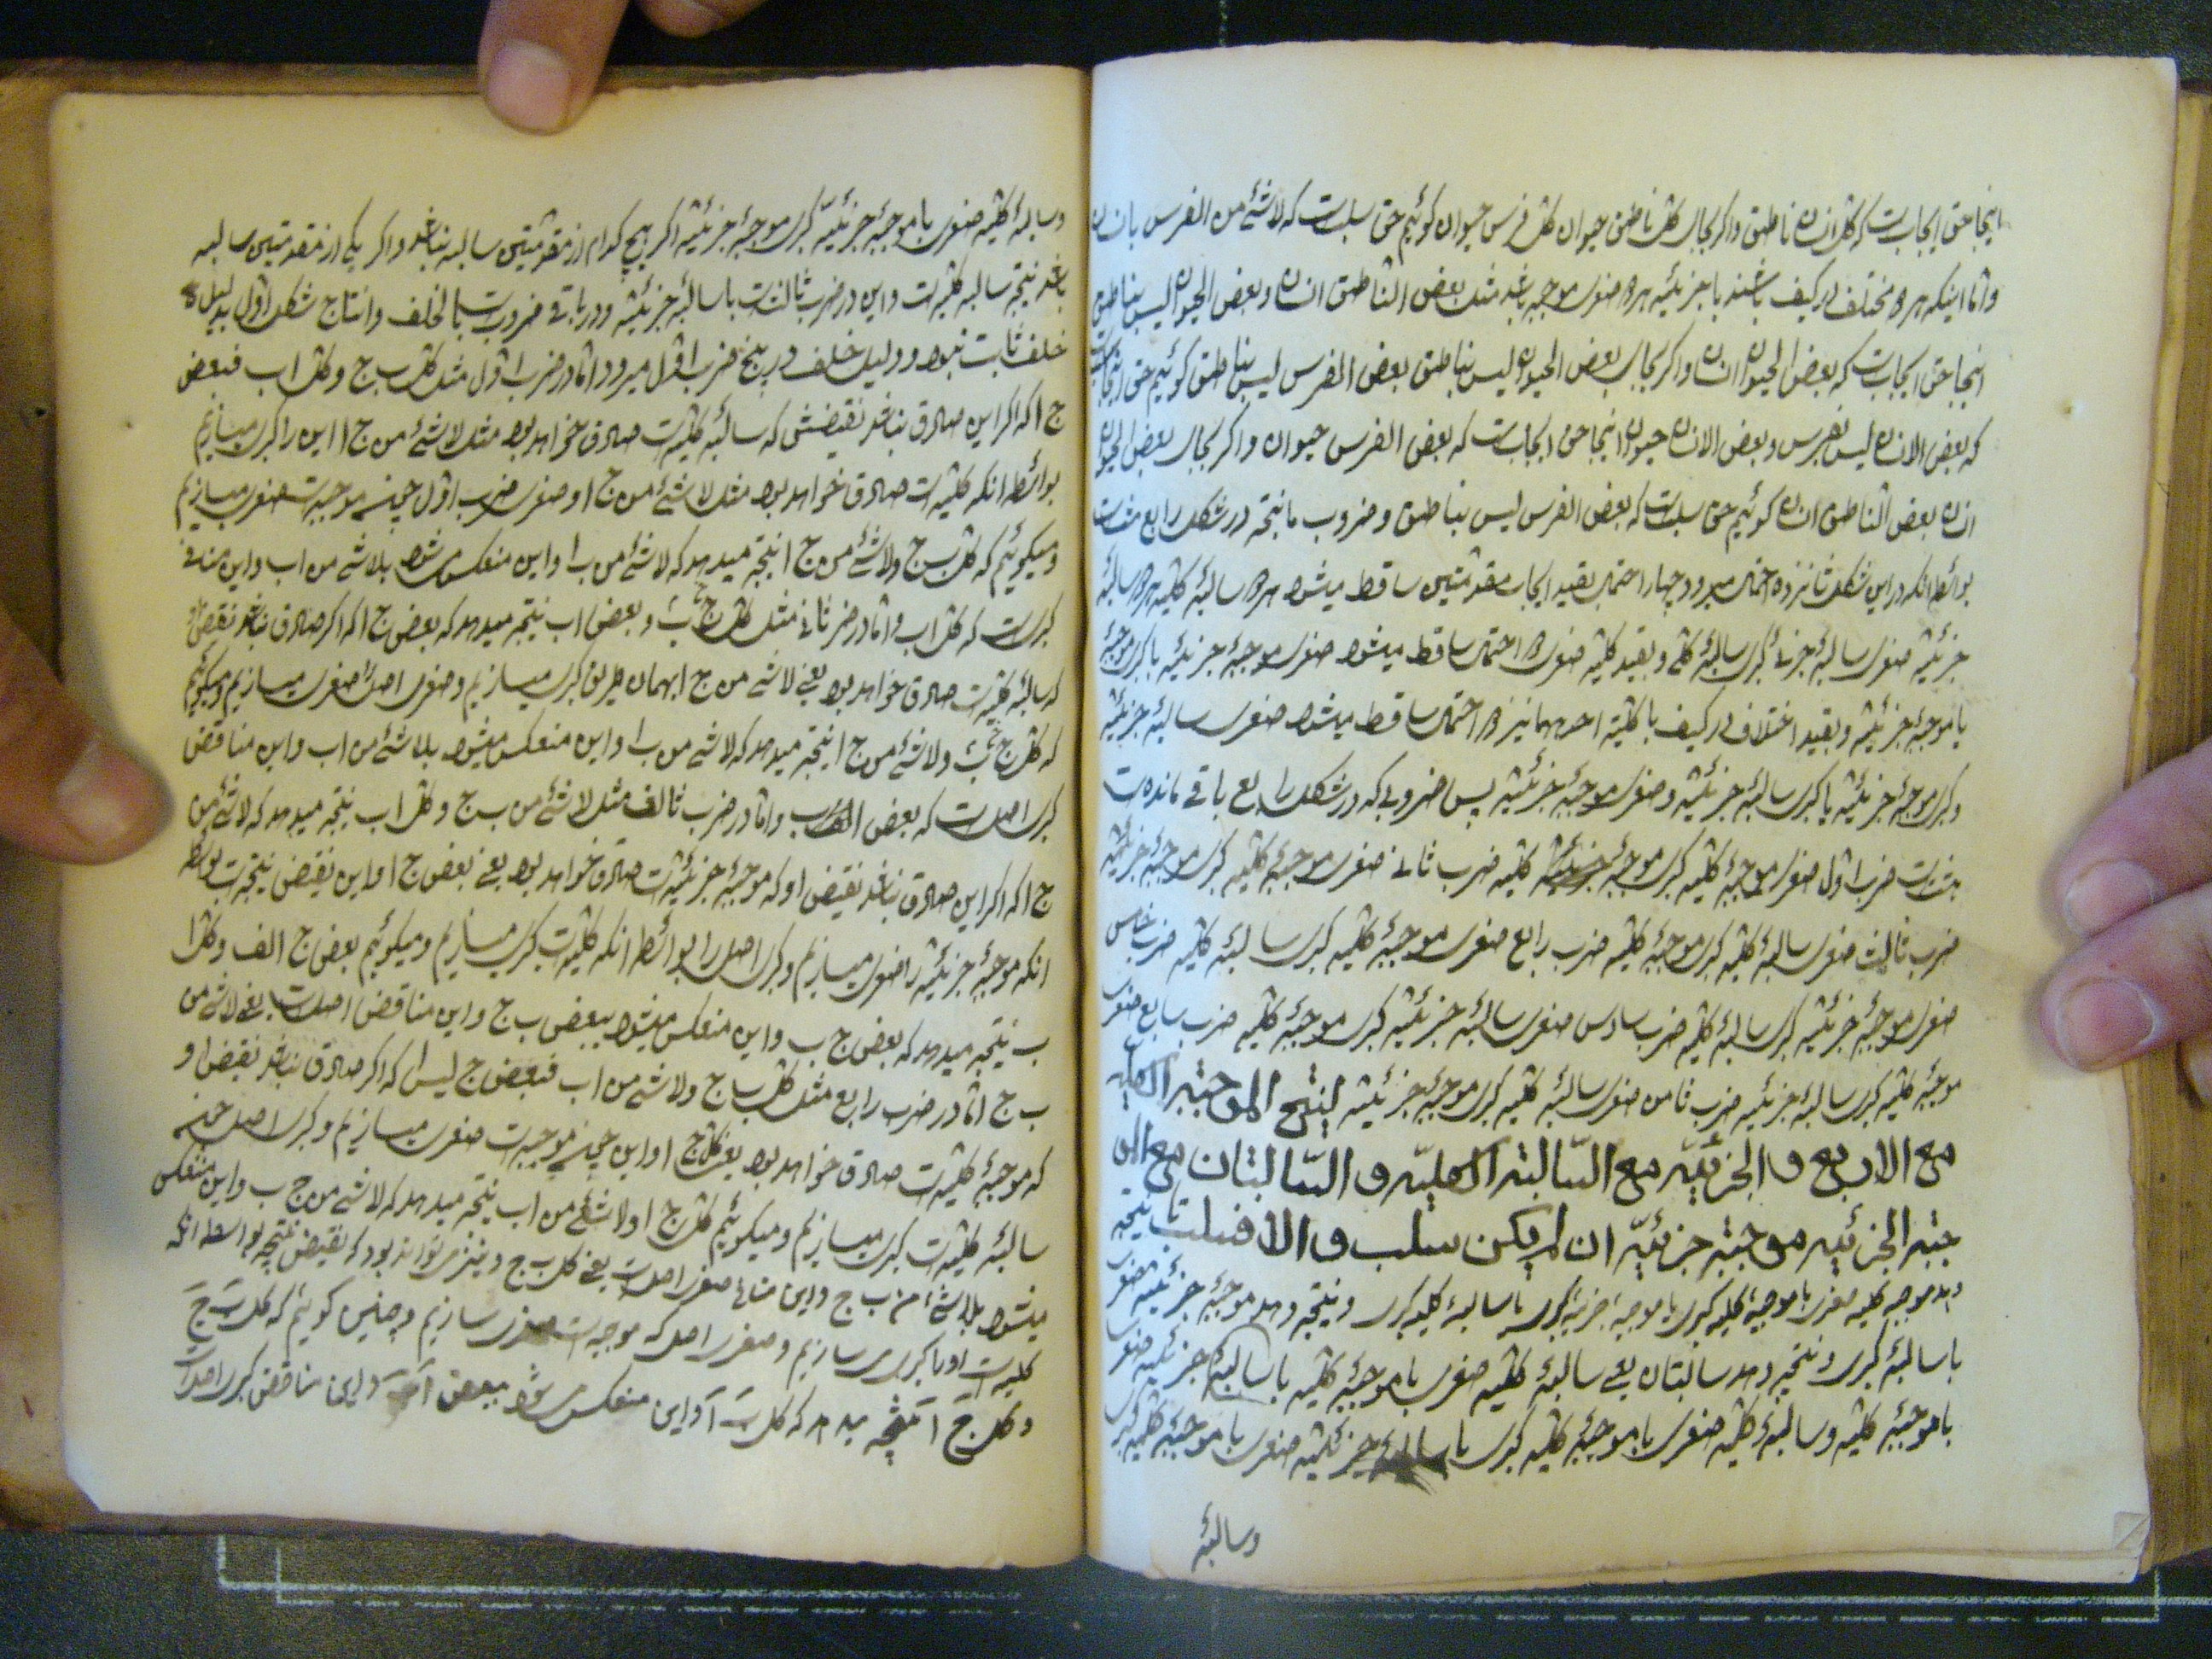 اینجا حق ایجابست که کل انسان ناطق و اگر بجای کل ناطق حیوان کل فرس حیوان کوئیم حق سلبست که لاشئ من الفرس بانسان
و اما اینکه هر دو مختلف در کیف باشند یا جزئیه هر دو صغری موجبه باشد مثل بعض الناطق انسان و بعض الحیوان لیس بناطق
اینجا حق ایجابست که بعض الحیوان انسان و اگر بجای بعض الحیوان لیس بناطق بعض الفرس لیس بناطق کوئیم حق
که بعض الانسان لیس بفرس و بعض الانسان حیوان اینجا حق ایجابست که بعض الفرس حیوان و اگر بجای بعض الحیوان
انسان بعض الناطق انسان کوئیم حق سلبست که بعض الفرس لیس بناطق و ضروب ما نتجه در شکل رابع هشت
بواسطه انکه در این شکل شانزده احتمال میرود چهار احتمال بقید ایجاب مقدمتین ساقط میشود هر دو سالبهٔ کلیه هر دو سالبهٔ
جزئیه صغری سالبهٔ جزئی کبری سالبهٔ کلی و بقید کلیه صغری دو احتمال ساقط میشود صغری موجبهٔ جزئیه با کبری موجبهٔ
یا موجبهٔ جزئیه و بقید اختلاف در کیف با کلیة احدیهما نیز دو احتمال ساقط میشود صغری سالبهٔ جزئیه
و کبری موجبهٔ جزئیه یا کبری سالبهٔ جزئیه و صغری موجبهٔ جزئیه پس ضروبی که در شکل رابع باقی مانده است
هشتست ضرب اول صغری موجبهٔ کلیه کبری موجبهٔ کلیه ضرب ثانی صغری موجبهٔ کلیه کبری موجبهٔ جزئیه
ضرب ثالث صغری سالبهٔ کلیه کبری موجبهٔ کلیه ضرب رابع صغری موجبهٔ کلیه کبری سالبهٔ کلیه ضرب خامس
صغری موجبهٔ جزئیه کبری سالبهٔ کلیه ضرب سادس صغری سالبهٔ جزئیه کبری موجبهٔ کلیه ضرب سابع صغری
موجبهٔ کلیه کبری سالبهٔ جزئیه ضرب ثامن صغری سالبهٔ کلیه کبری موجبهٔ جزئیه لینتج الموجبة الکلیه
مع الاربع و الجزئیه مع السالبة الکلیه و السالبتان مع المو
جبة الجزئیه موجبة جزئیه ان لم یکن سلب و الا فسلب تا نتیجه
دهد موجبه کلیه صغری با موجبهٔ کلیه کبری یا موجبهٔ جزئیه کبری یا سالبهٔ کلیه کبری و نتیجه دهد موجبهٔ جزئیه صغری
با سالبهٔ کبری و نتیجه دهد سالبتان یعنی سالبهٔ کلیه صغری با موجبهٔ کلیه یا سالبهٔ جزئیه صغری
با موجبهٔ کلیه و سالبهٔ کلیه صغری با موجبهٔ کلیه کبری یا سالبهٔ جزئیه صغری با موجبهٔ کلیه کبری
وسالبهٔ
وسالبهٔ کلیه صغری با موجبهٔ جزئیه کبری موجبهٔ جزئیه اکر هیچ کدام از مقدمتین سالبه نباشد و اکر یکی از مقدمتین سالبه
باشد نتیجه سالبه کلیه است و این در ضرب ثالث است یا سالبهٔ جزئیه و در باقی ضروبست بالخلف و انتاج شکل اول بدلیل
خلف ثابت نبود و دلیل خلف در پنج ضرب اول میرود اما در ضرب اول مثل کل ب ج و کل ا ب فبعض
ج ا که اکر این صادق نباشد نقیضش که سالبهٔ کلیه است صادق خواهد بود مثل لاشئ من ج ا این را کبری میسازیم
بواسطه انکه کلیه است صادق خواهد بود مثل لاشئ من ج ا و صغری ضرب اول چون موجبه است صغری میسازیم
و میکوئیم که کل ب ج و لاشئ من ج ا نتیجه میدهد که لاشئ من ب ا و این منعکس میشود بلاشئ من ا ب و این منافی
کبریست که کل ا ب و اما در ضرب ثانی مثل کل ج ب و بعض ا ب نتیجه میدهد که بعض ج ا که اکر صادق نباشد نقیض او
که سالبهٔ کلیه است صادق خواهد بود یعنی لاشئ من ج ا بهمان طریق کبری میسازیم و صغری اصل را صغری میسازیم و میکوئیم
که کل ج ب و لاشئ من ج ا نتیجه میدهد که لاشئ من ب ا و این منعکس میشود بلاشئ من ا ب و این مناقض
کبری اصلست که بعض الف ب و اما در ضرب ثالث مثل لاشئ من ب ج و کل ا ب نتیجه میدهد که لاشئ من
ج ا که اکر این صادق نباشد نقیض او که موجبهٔ جزئیه است صادق خواهد بود یعنی بعض ج ا و این نقیض نتیجه است بواسطه
انکه موجبهٔ جزئیه را صغری میسازیم و کبری اصل را بواسطه انکه کلیه است کبری میسازیم و میکوئیم بعض ج الف و کل ا
ب نتیجه میدهد که بعض ج ب و این منعکس میشود ببعض ب ج و این مناقض اصلست یعنی لاشئ من
ب ج اما در ضرب رابع مثل کل ب ج و لاشئ من ا ب فبعض ج لیس ا که اکر صادق نباشد نقیض او
که موجبهٔ کلیه است صادق خواهد بود یعنی کل ج ا و این چون موجبه است صغری میسازیم و کبری اصل چون
سالبهٔ کلیه است کبری میسازیم و میکوئیم کل ج ا و لاشئ من ا ب نتیجه میدهد که لاشئ من ج ب و این منعکس
میشود بلاشئ من ب ج و این منافی صغری اصلست یعنی کل ب ج و نیز می تواند بود که نقیض نتیجه بواسطه انکه
کلیه است او را کبری سازیم و صغری اصل که موجبه است صغری سازیم و چنین کوئیم که کل ب ج
و کل ج ا نتیجه میدهد که کل ب ا و این منعکس میشود ببعض ا ب و این مناقض کبری اصلست